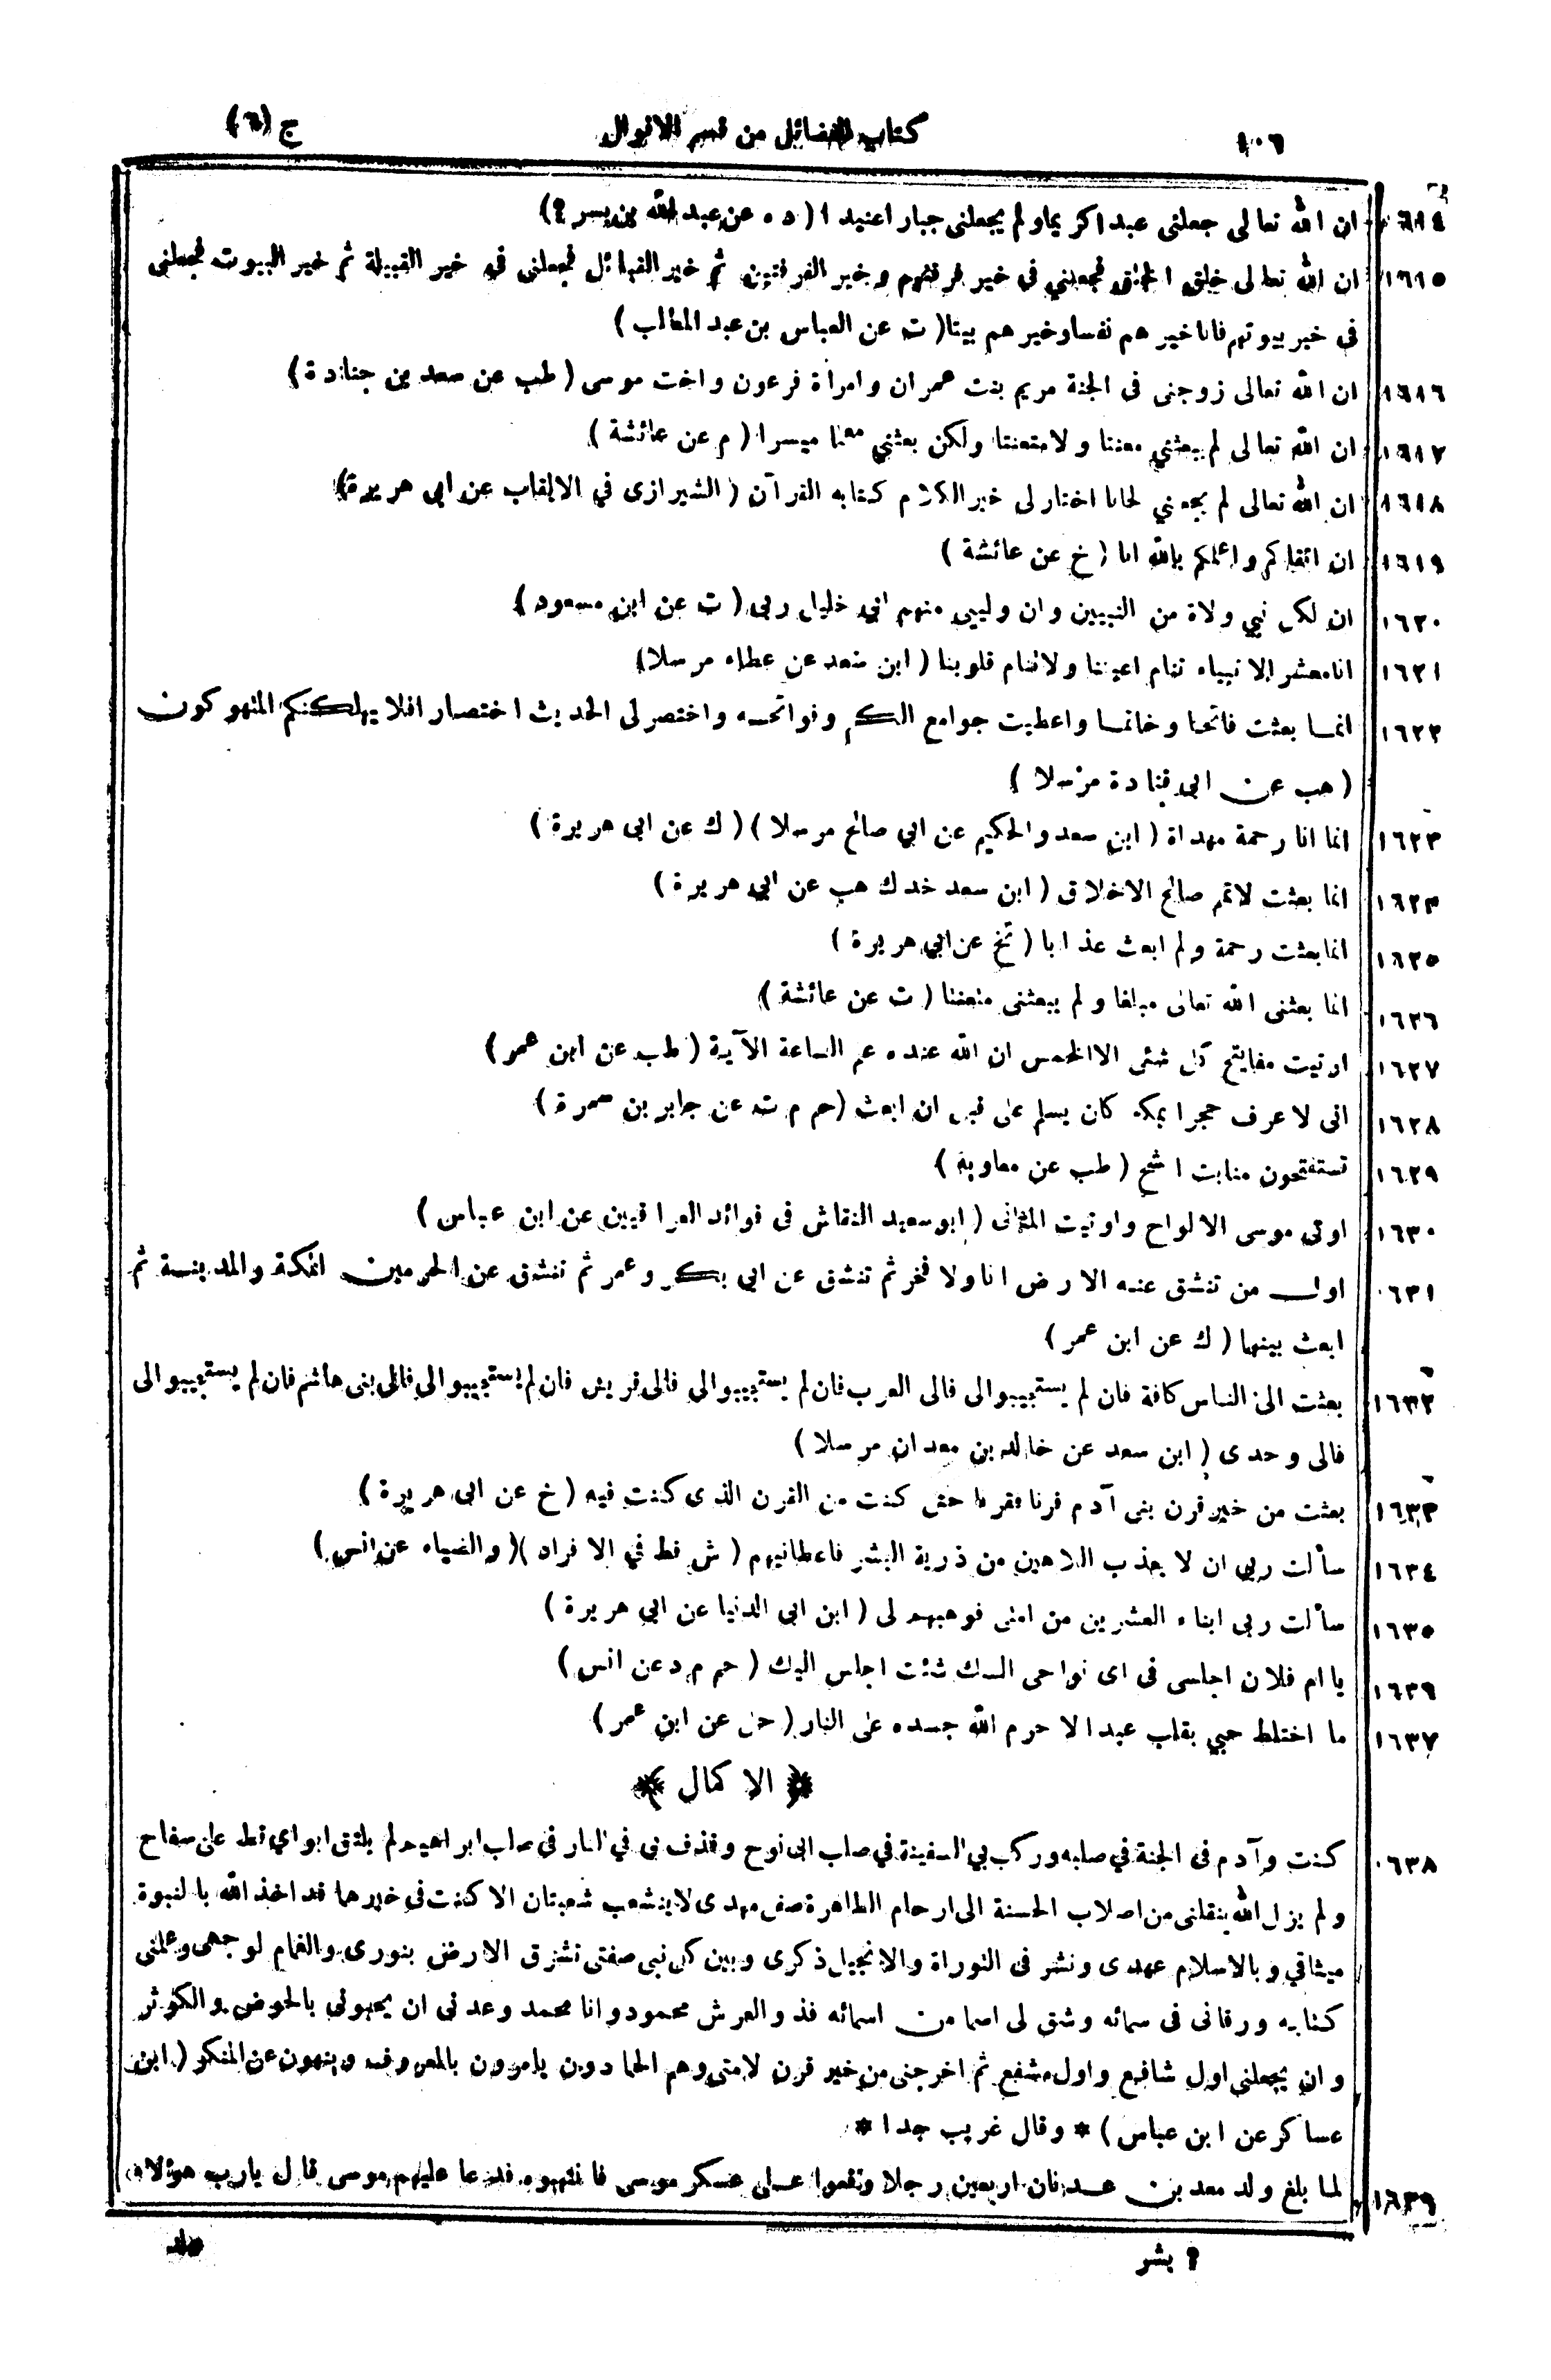 ١٠٦ كتاب الفضائل من قسم الاقوال ج (٦)
١٦١٤ ان الله تعالى جعلنى عبداكريما ولم يجعلنى جبارا عنيدا (د ه عن عبد الله بن بسر ؟)
١٦١٥ ان الله تعالى خلق الخلق فجعلني في خير فرقهم وخير الفرقتين ثم خير القبائل فجعلنى في خير القبيلة ثم خير البيوت فجعلنى
في خير بيوتهم فاناخيرهم نفساوخيرهم بيتا (ت عن العباس بن عبد المطلب)
١٦١٦ ان الله تعالى زوجنى فى الجنة مريم بنت عمران وامرأة فرعون واخت موسى (طب عن سعد بن جنادة)
١٦١٧ ان الله تعالى لم يبعثني معنتا ولا متعنتا ولكن بعثني معلما ميسرا (م عن عائشة)
١٦١٨ ان الله تعالى لم يجعلني لحانا اختار لى خير الكلام كتابه القرآن (الشيرازى في الالقاب عن ابى هريرة)
١٦١٩ ان اتقاكم واعلمكم بالله انا (خ عن عائشة)
١٦٢٠ ان لكل نبي ولاة من النبيين وان وليي منهم ابى خليل ربى (ت عن ابن مسعود)
١٦٢١ انامعشر الانبياء تنام اعيننا ولاتنام قلوبنا (ابن سعد عن عطاء مرسلا)
١٦٢٢ انما بعثت فاتحا وخاتما واعطيت جوامع الكلم وفواتحه واختصر لى الحديث اختصارا فلا يهلكنكم المتهوكون
(هب عن ابى قتادة مرسلا)
١٦٢٣ انما انا رحمة مهداة (ابن سعد والحكيم عن ابي صالح مرسلا) (ك عن ابى هريرة)
١٦٢٤ انما بعثت لاتمم صالح الاخلاق (ابن سعد خد ك هب عن ابى هريرة)
١٦٢٥ انمابعثت رحمة ولم ابعث عذابا (تخ عن ابي هريرة)
١٦٢٦ انما بعثنى الله تعالى مبلغا ولم يبعثنى متعنتا (ت عن عائشة)
١٦٢٧ اوتيت مفاتيح كل شئى الا الخمس ان الله عنده علم الساعة الآية (طب عن ابن عمر)
١٦٢٨ انى لاعرف حجرا بمكة كان يسلم على قبل ان ابعث (حم م ت عن جابر بن سمرة)
١٦٢٩ تستفتحون منابت الشيح (طب عن معاوية)
١٦٣٠ اوتى موسى الالواح واوتيت المثانى (ابوسعيد النقاش فى فوائد العراقيين عن ابن عباس)
١٦٣١ اول من تنشق عنه الارض انا ولا فخر ثم تنشق عن ابى بكر وعمر ثم تنشق عن الحرمين مكة والمدينة ثم
ابعث بينهما (ك عن ابن عمر)
١٦٣٢ بعثت الى الناس كافة فان لم يستجيبوا لى فالى العرب فان لم يستجيبوا لى فالى قريش فان لم يستجيبوا لى فالى بنى هاشم فان لم يستجيبوا لى
فالى وحدى (ابن سعد عن خالد بن معدان مرسلا)
١٦٣٣ بعثت من خير قرن بنى آدم قرنا فقرنا حتى كنت من القرن الذى كنت فيه (خ عن ابى هريرة)
١٦٣٤ سألت ربى ان لا يعذب اللاهين من ذرية البشر فاعطانيهم (ش قط في الافراد) (والضياء عن انس)
١٦٣٥ سألت ربى ابناء العشرين من امتى فوهبهم لى (ابن ابى الدنيا عن ابي هريرة)
١٦٣٦ يا ام فلان اجلسى فى اى نواحى السكك شئت اجلس اليك (حم م د عن انس)
١٦٣٧ ما اختلط حبي بقلب عبد الا حرم الله جسده على النار (حل عن ابن عمر)
﴿ الاكمال ﴾
١٦٣٨ كنت وآدم فى الجنة في صلبه وركب بي السفينة في صلب ابى نوح وقذف بى في النار فى صلب ابراهيم لم يلتق ابواي قط على سفاح
ولم يزل الله ينقلنى من اصلاب الحسنة الى ارحام الطاهرة صفى مهدى لاينشعب شعبتان الا كنت فى خيرهما قد اخذ الله بالنبوة
ميثاقي وبالاسلام عهدى ونشر فى التوراة والانجيل ذكرى وبين كل نبى صفتى تشرق الارض بنورى والغمام لوجهى وعلمنى
كتابه ورقانى فى سمائه وشق لى اسما من اسمائه فذو العرش محمود وانا محمد وعدنى ان يحبوني بالحوض والكوثر
وان يجعلنى اول شافع واول مشفع ثم اخرجنى من خير قرن لامتى وهم الحمادون يامرون بالمعروف وينهون عن المنكر (ابن
عساكر عن ابن عباس) * وقال غريب جدا *
١٦٣٩ لما بلغ ولد معد بن عدنان اربعين رجلا وقعوا على عسكر موسى فانتهبوه فدعا عليهم موسى قال يارب هؤلاء
؟ بشر